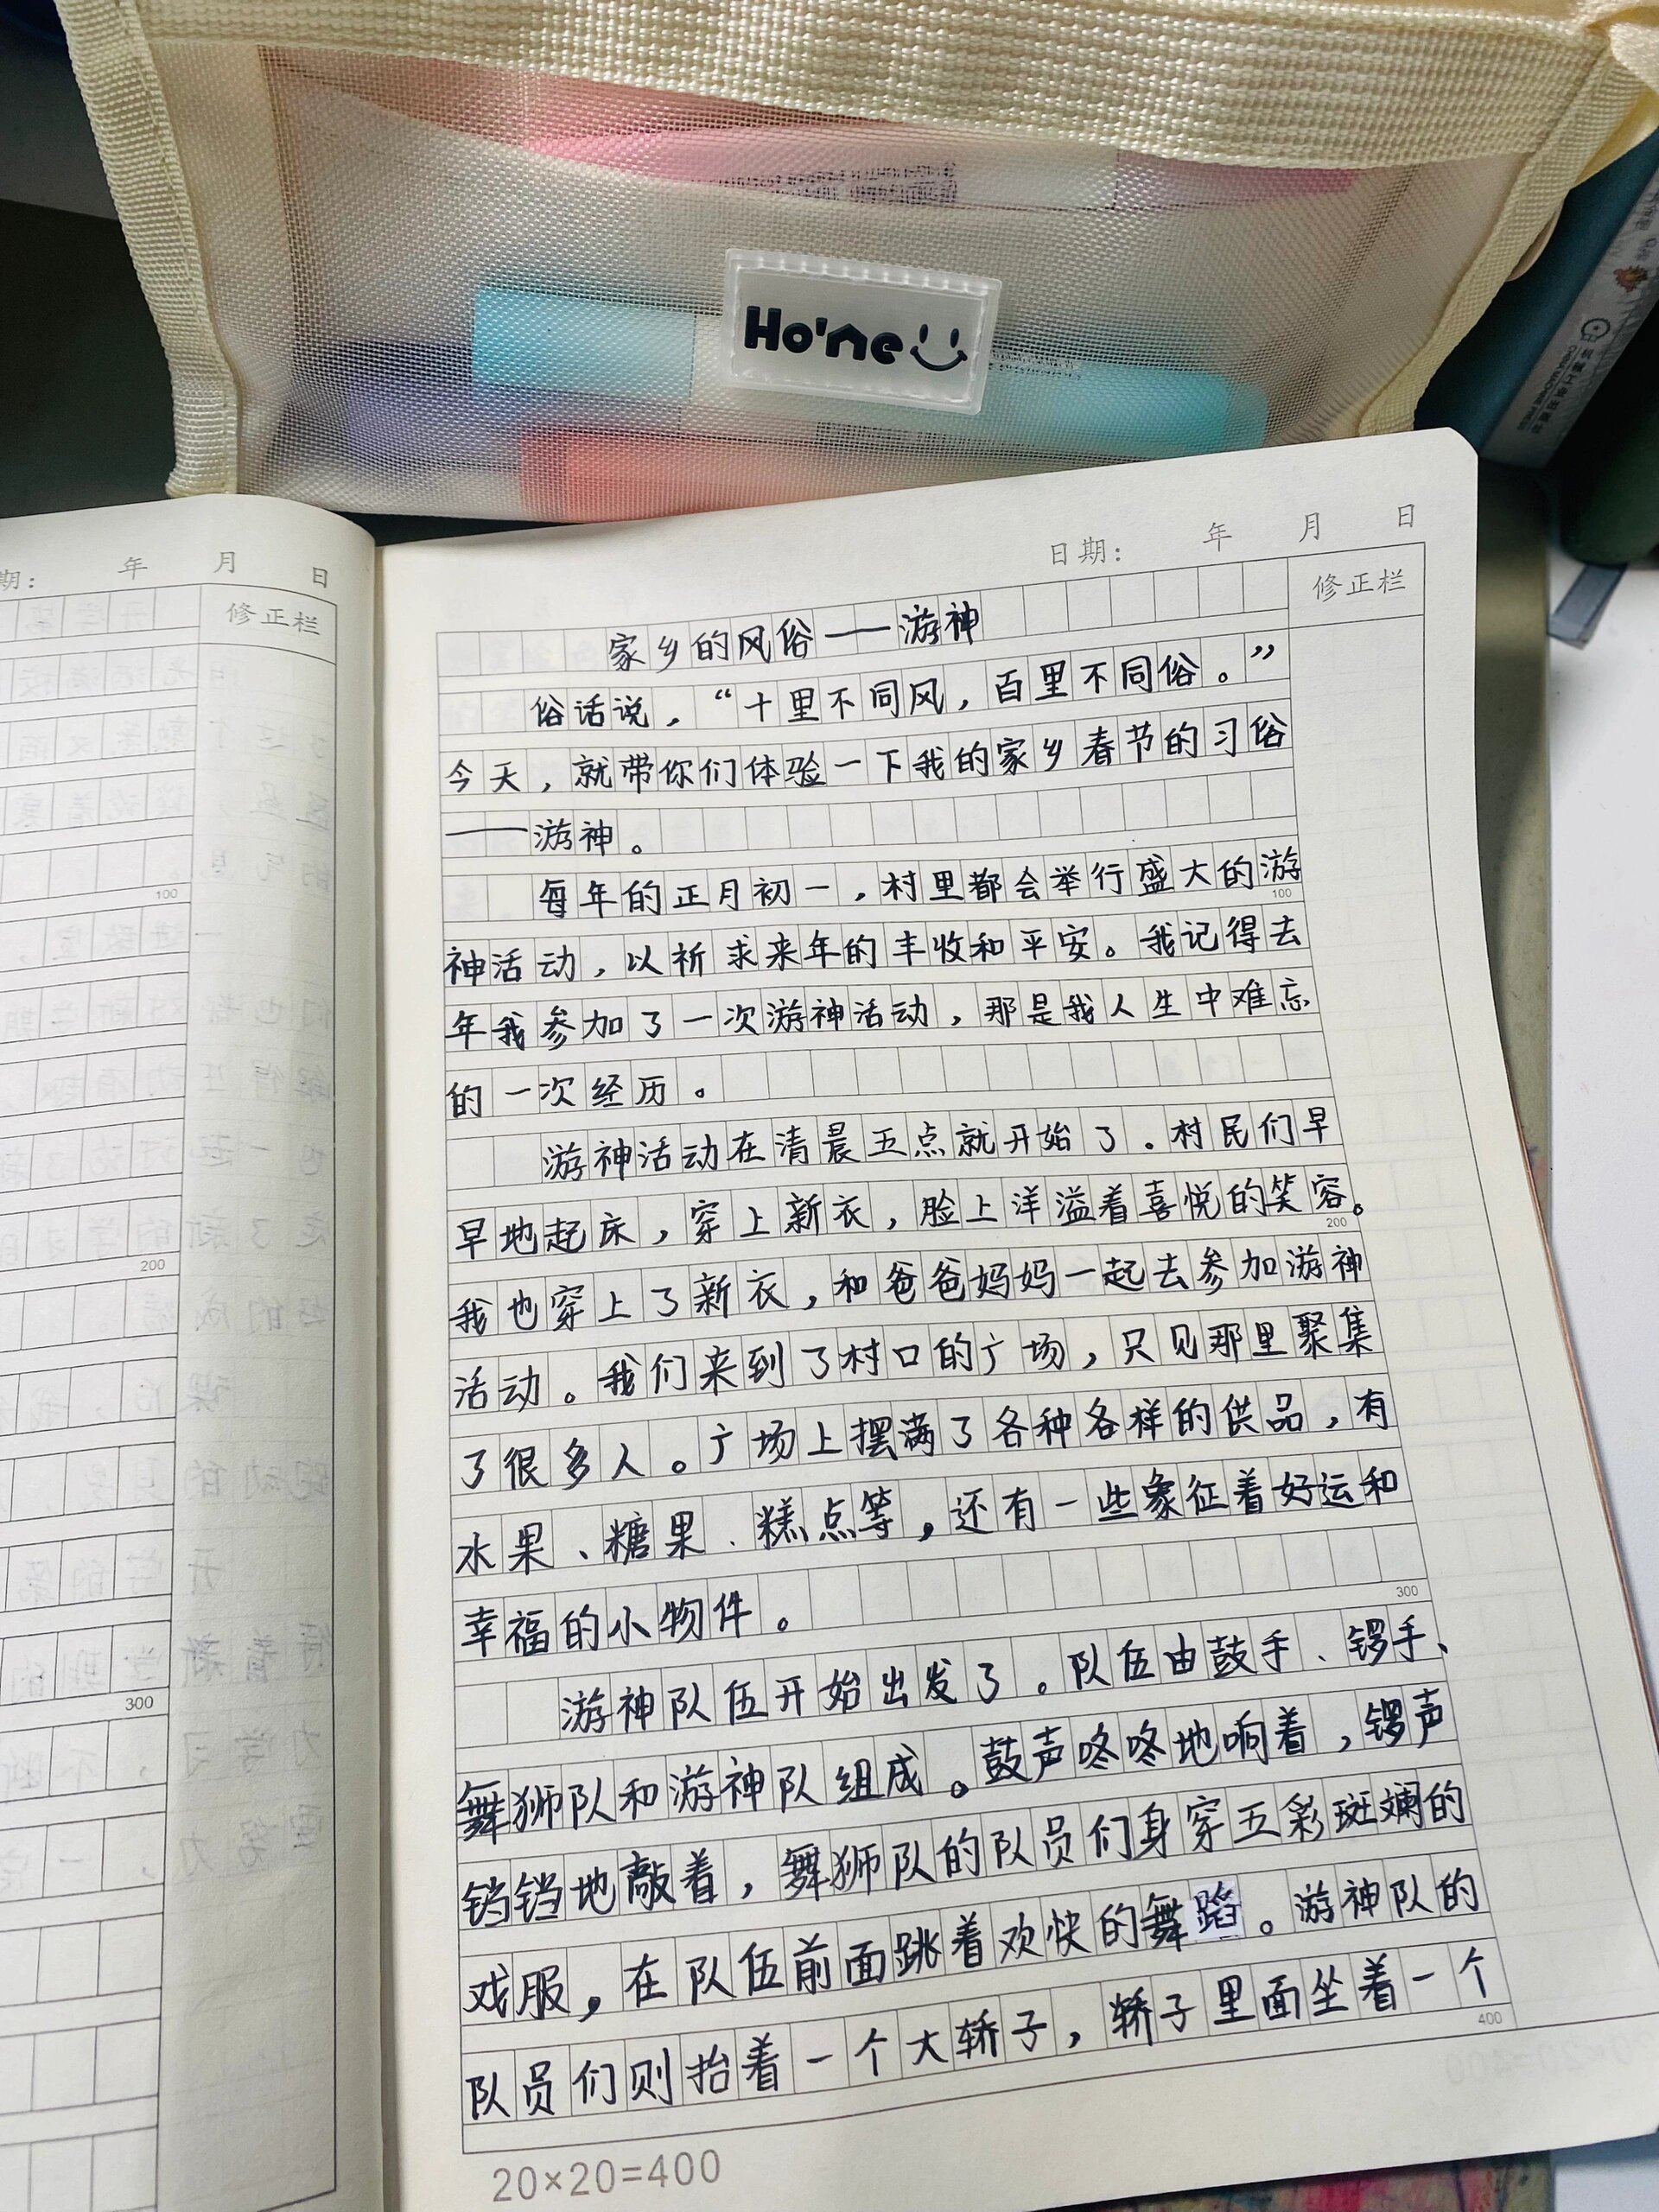 Ho'me
日期： 年 月 日
修正栏
家乡的风俗——游神
俗话说，“十里不同风，百里不同俗。”
今天，就带你们体验一下我的家乡春节的习俗
——游神。
每年的正月初一，村里都会举行盛大的游
100
神活动，以祈求来年的丰收和平安。我记得去
年我参加了一次游神活动，那是我人生中难忘
的一次经历。
游神活动在清晨五点就开始了．村民们早
早地起床，穿上新衣，脸上洋溢着喜悦的笑容。
200
我也穿上了新衣，和爸爸妈妈一起去参加游神
活动。我们来到了村口的广场，只见那里聚集
了很多人。广场上摆满了各种各样的供品，有
水果、糖果、糕点等，还有一些象征着好运和
幸福的小物件。
300
游神队伍开始出发了。队伍由鼓手、锣手、
舞狮队和游神队组成。鼓声咚咚地响着，锣声
铛铛地敲着，舞狮队的队员们身穿五彩斑斓的
戏服，在队伍前面跳着欢快的舞蹈。游神队的
队员们则抬着一个大轿子，轿子里面坐着一个
400
20×20=400
期： 年 月 日
修正栏
100
200
300